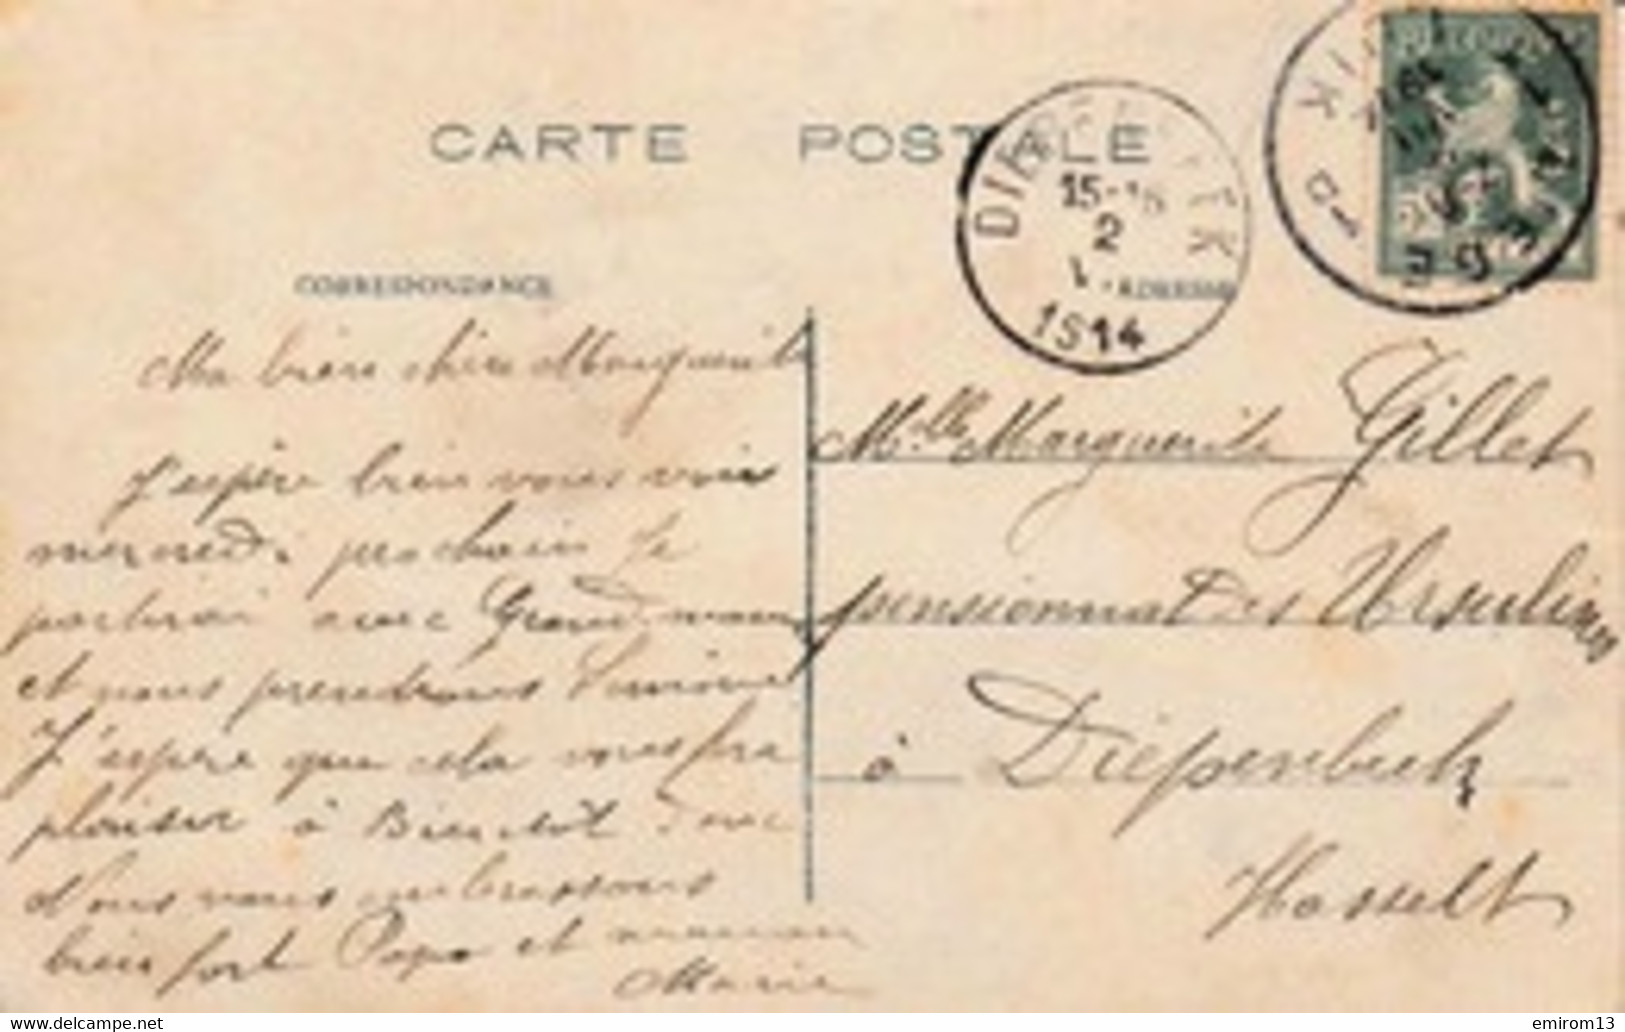 CARTE POSTALE
15-16
2
1914
CORRESPONDANCE
ADRESSE
Ma bien chère Marguerite
J'espère bien vous voir
mercredi prochain Je
partirai avec Grand maman
et nous prendrons
J'espère que cela vous fra
plaisir à Bientôt donc
Nous vous embrassons
bien fort Papa et maman
Marie
Mlle Marguerite Gillet
pensionnat des Ursulines
à Diépenbeek
Hasselt
delcampe.net
emirom13